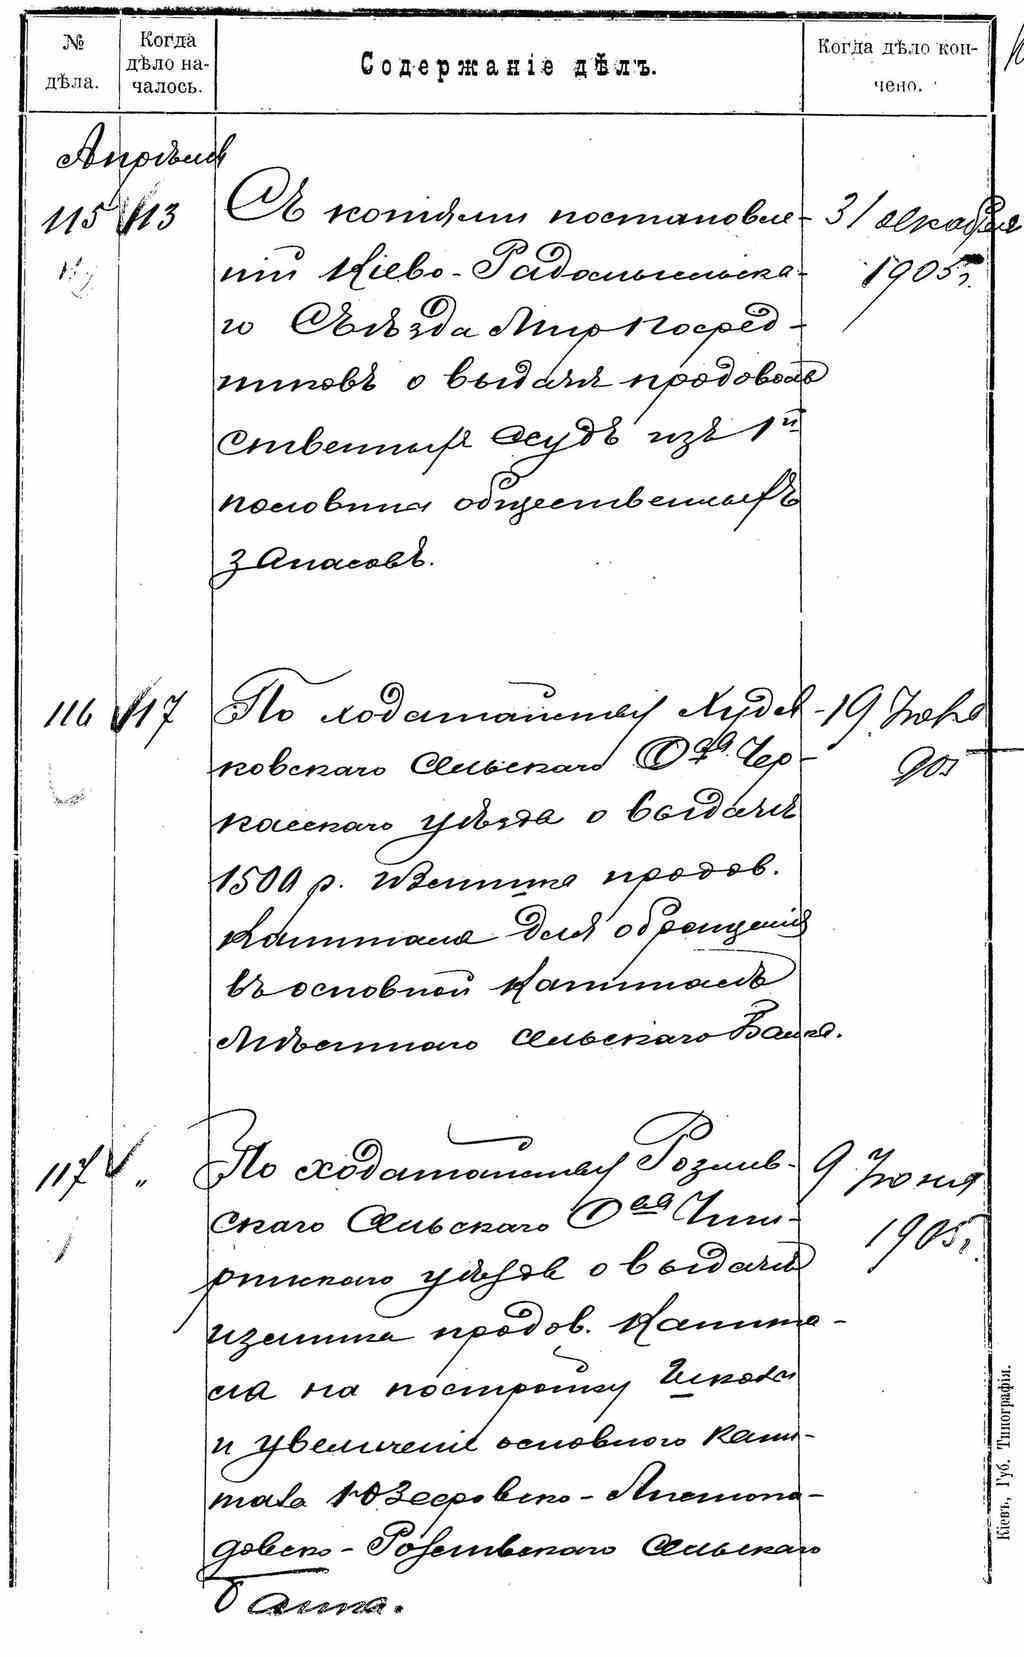 № дѣла.
Когда дѣло на-
чалось.
Содержаніе дѣлъ.
Когда дѣло кон-
чено.
Апрѣля
115 13 Съ копіями постановле- 31 декабря
ній Кіево-Радомысльска- 1905 г.
го Съѣзда Мир Посред-
никовъ о выдачѣ продоволь
ственныхъ ссудъ изъ 1й
половины общественныхъ
запасовъ.
116 17 По ходатайству Худя- 19 Іюня
ковскаго Сельскаго О-ва Чер- 905
касскаго уѣзда о выдачѣ
1500 р. излишка продов.
капитала для обращенія
въ основной капиталъ
мѣстнаго сельскаго Банка.
117 " По ходатайству Розлив- 9 Іюня
скаго Сельскаго О-ва Чиги- 1905 г.
ринскаго уѣзда о выдачѣ
излишка продов. Капита-
ла на постройку школы
и увеличеніе основного капи-
тала
- Розливскаго Сельскаго
банка.
Кіевъ, Губ. Типографія.